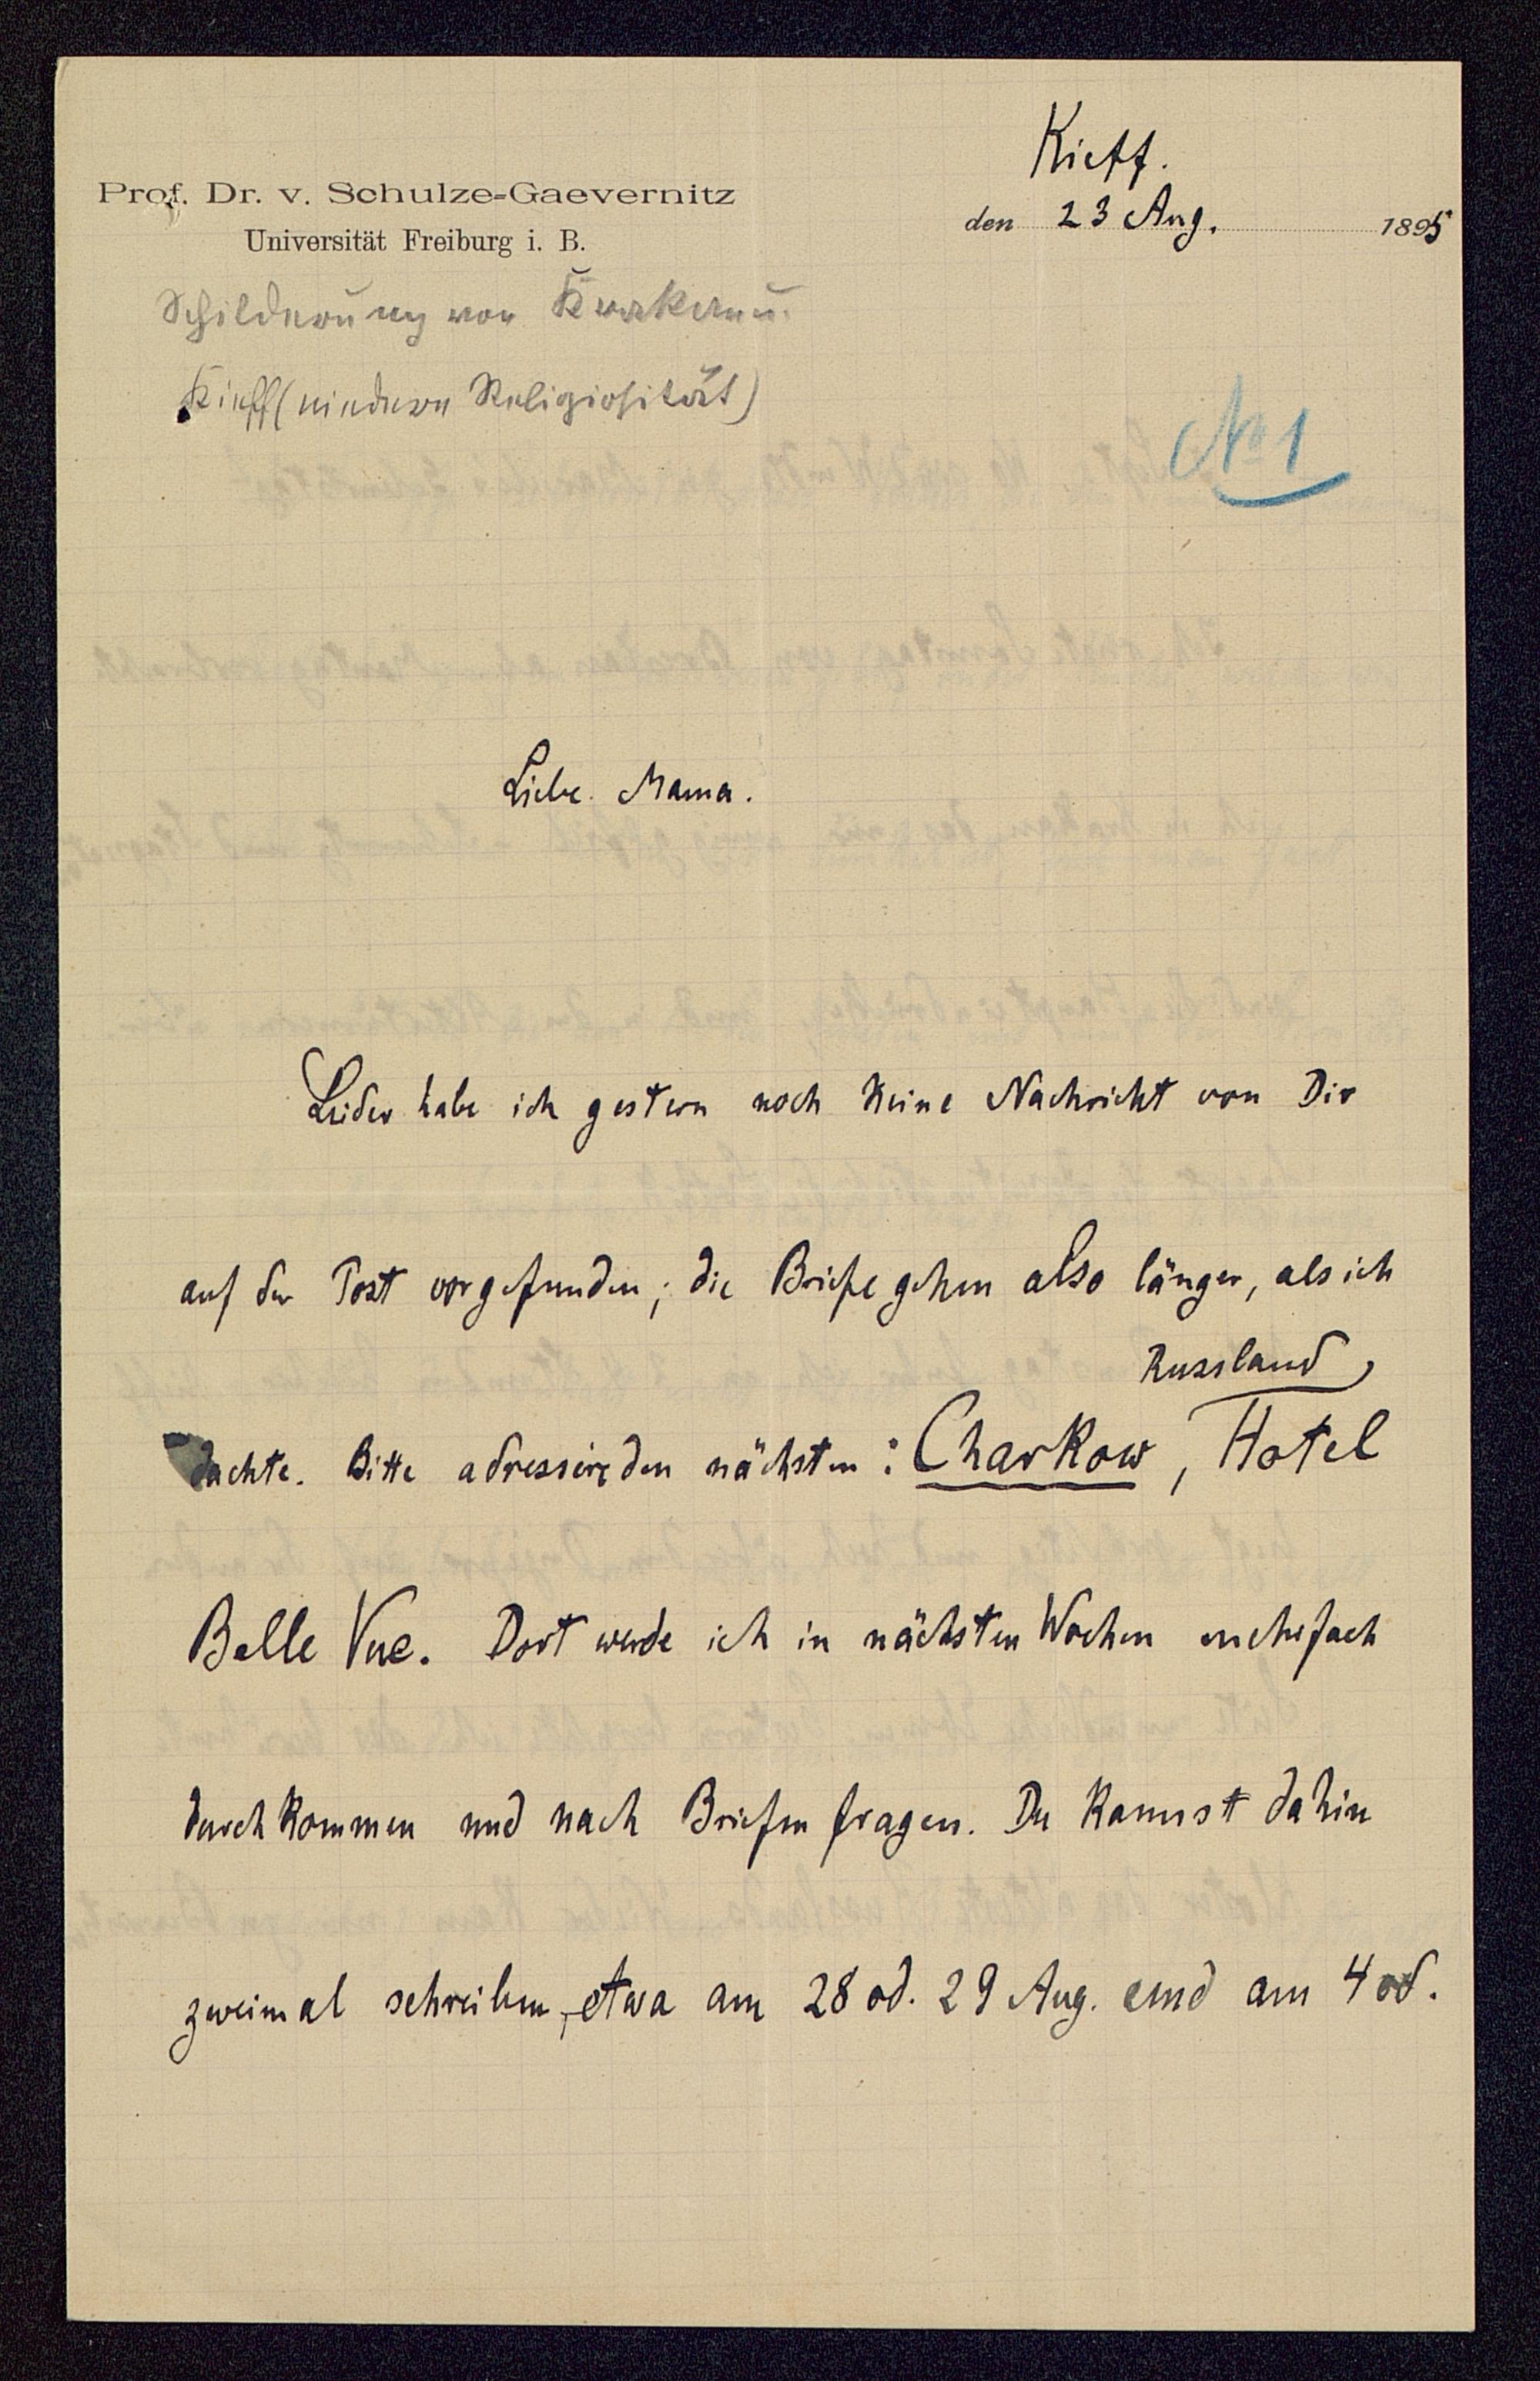 Kieff.
Prof. Dr. v. Schulze-Gaevernitz
den 23 Aug. 1895
Universität Freiburg i. B.
Schilderung von Krakau u.
Kieff (niedere Religiosität)
No 1
Liebe Mama.
Leider habe ich gestern noch keine Nachricht von Dir
auf der Post vorgefunden; die Briefe gehen also länger, als ich
Russland,
dachte. Bitte adressire den nächsten: Charkow, Hotel
Belle Vue. Dort werde ich in nächsten Wochen mehrfach
durchkommen und nach Briefen fragen. Du kannst dahin
zweimal schreiben, etwa am 28 od. 29 Aug. und am 4 od.